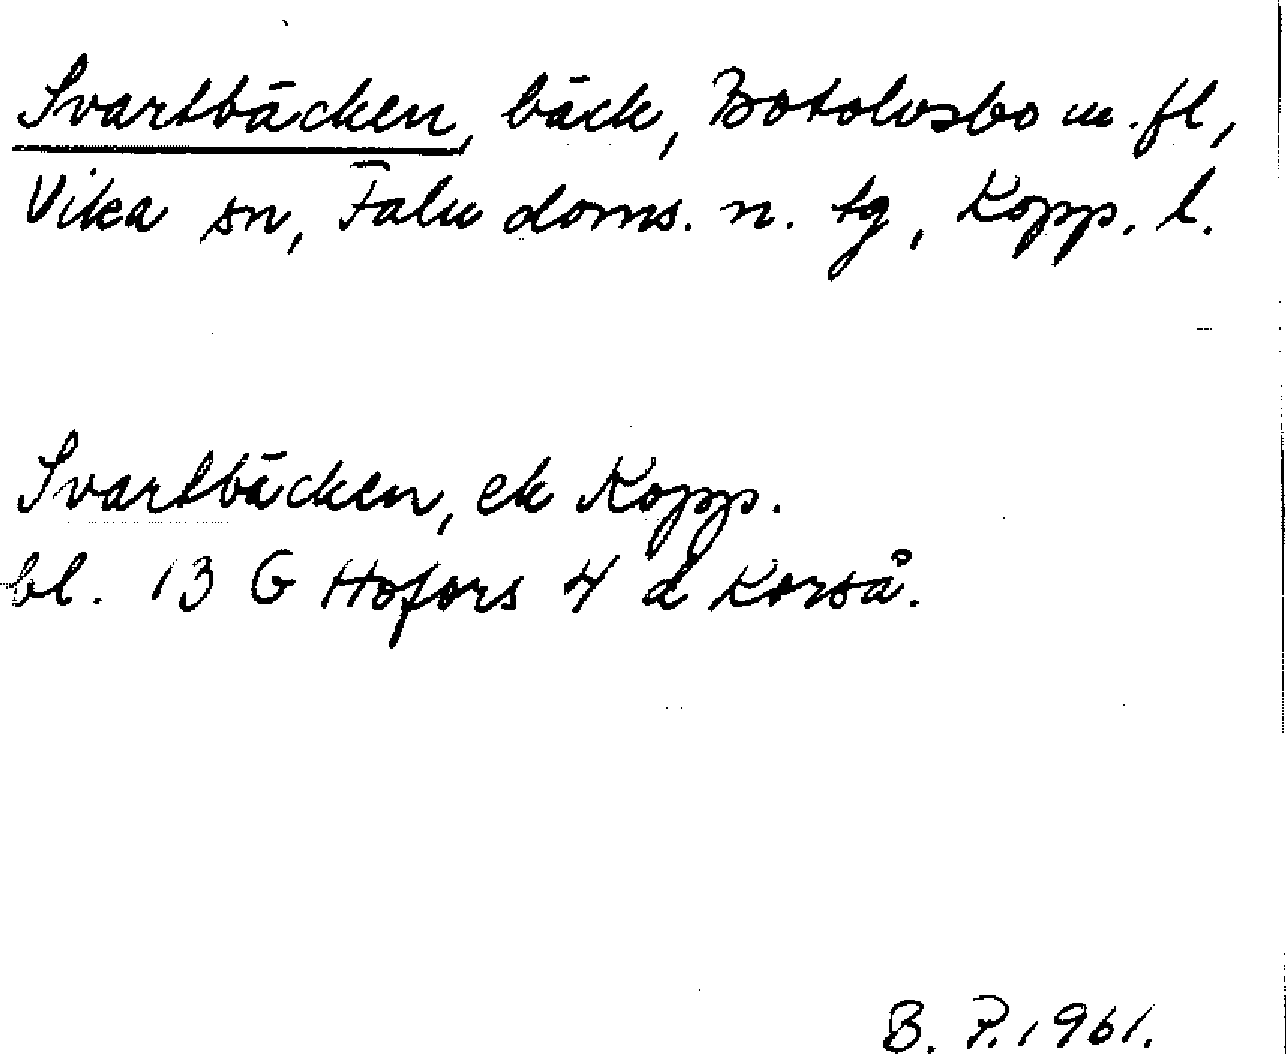 Svartbäcken, bäck, Botolvsbo m.fl,
Vika sn, Falu doms. n. tg, Kopp. l.
Svartbäcken, ek Kopp.
bl. 13 G Hofors 4 d Korså.
B. P. 1961.